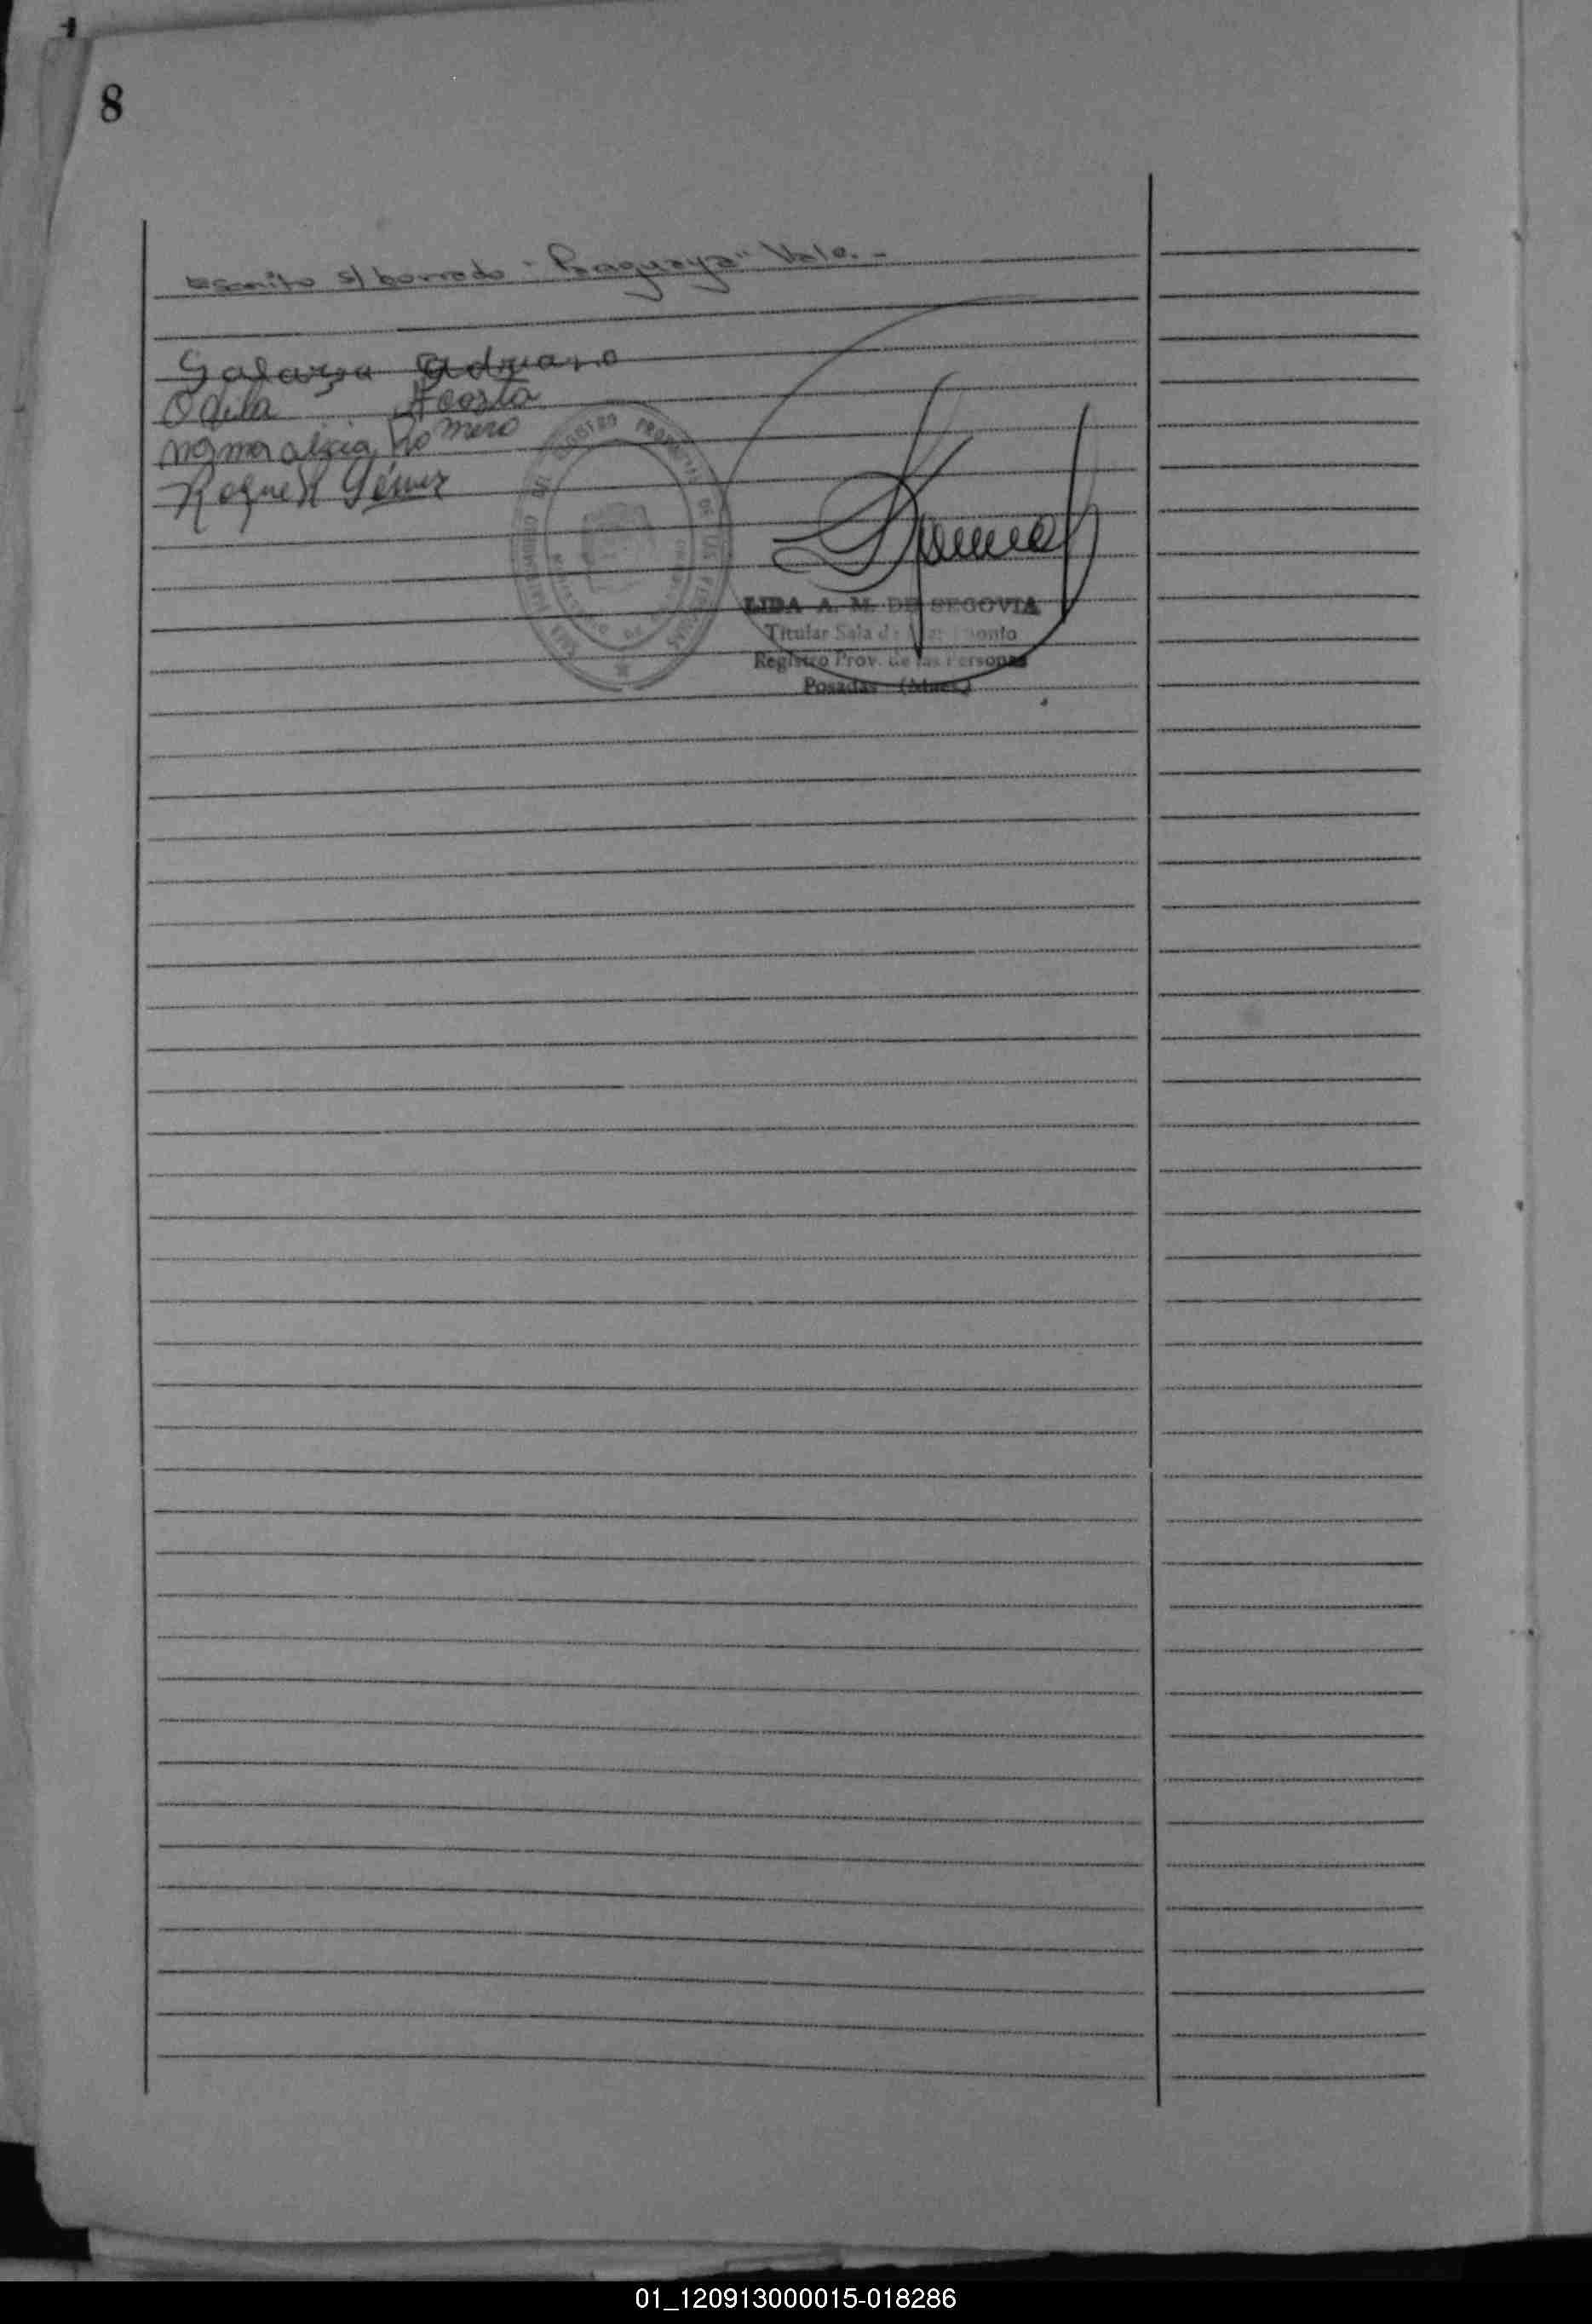 8
Escrito s/ borrado "Paraguaya" Vale.-
Galarza Adriano
Odila Acosta
Norma alicia Romero
Roque Gómez
REGISTRO PROVINCIAL DE LAS PERSONAS
LIDA A. M. DE SEGOVIA
Titular Sala de
Registro Prov. de las Personas
Posadas (Mnes.)
01_120913000015-018286